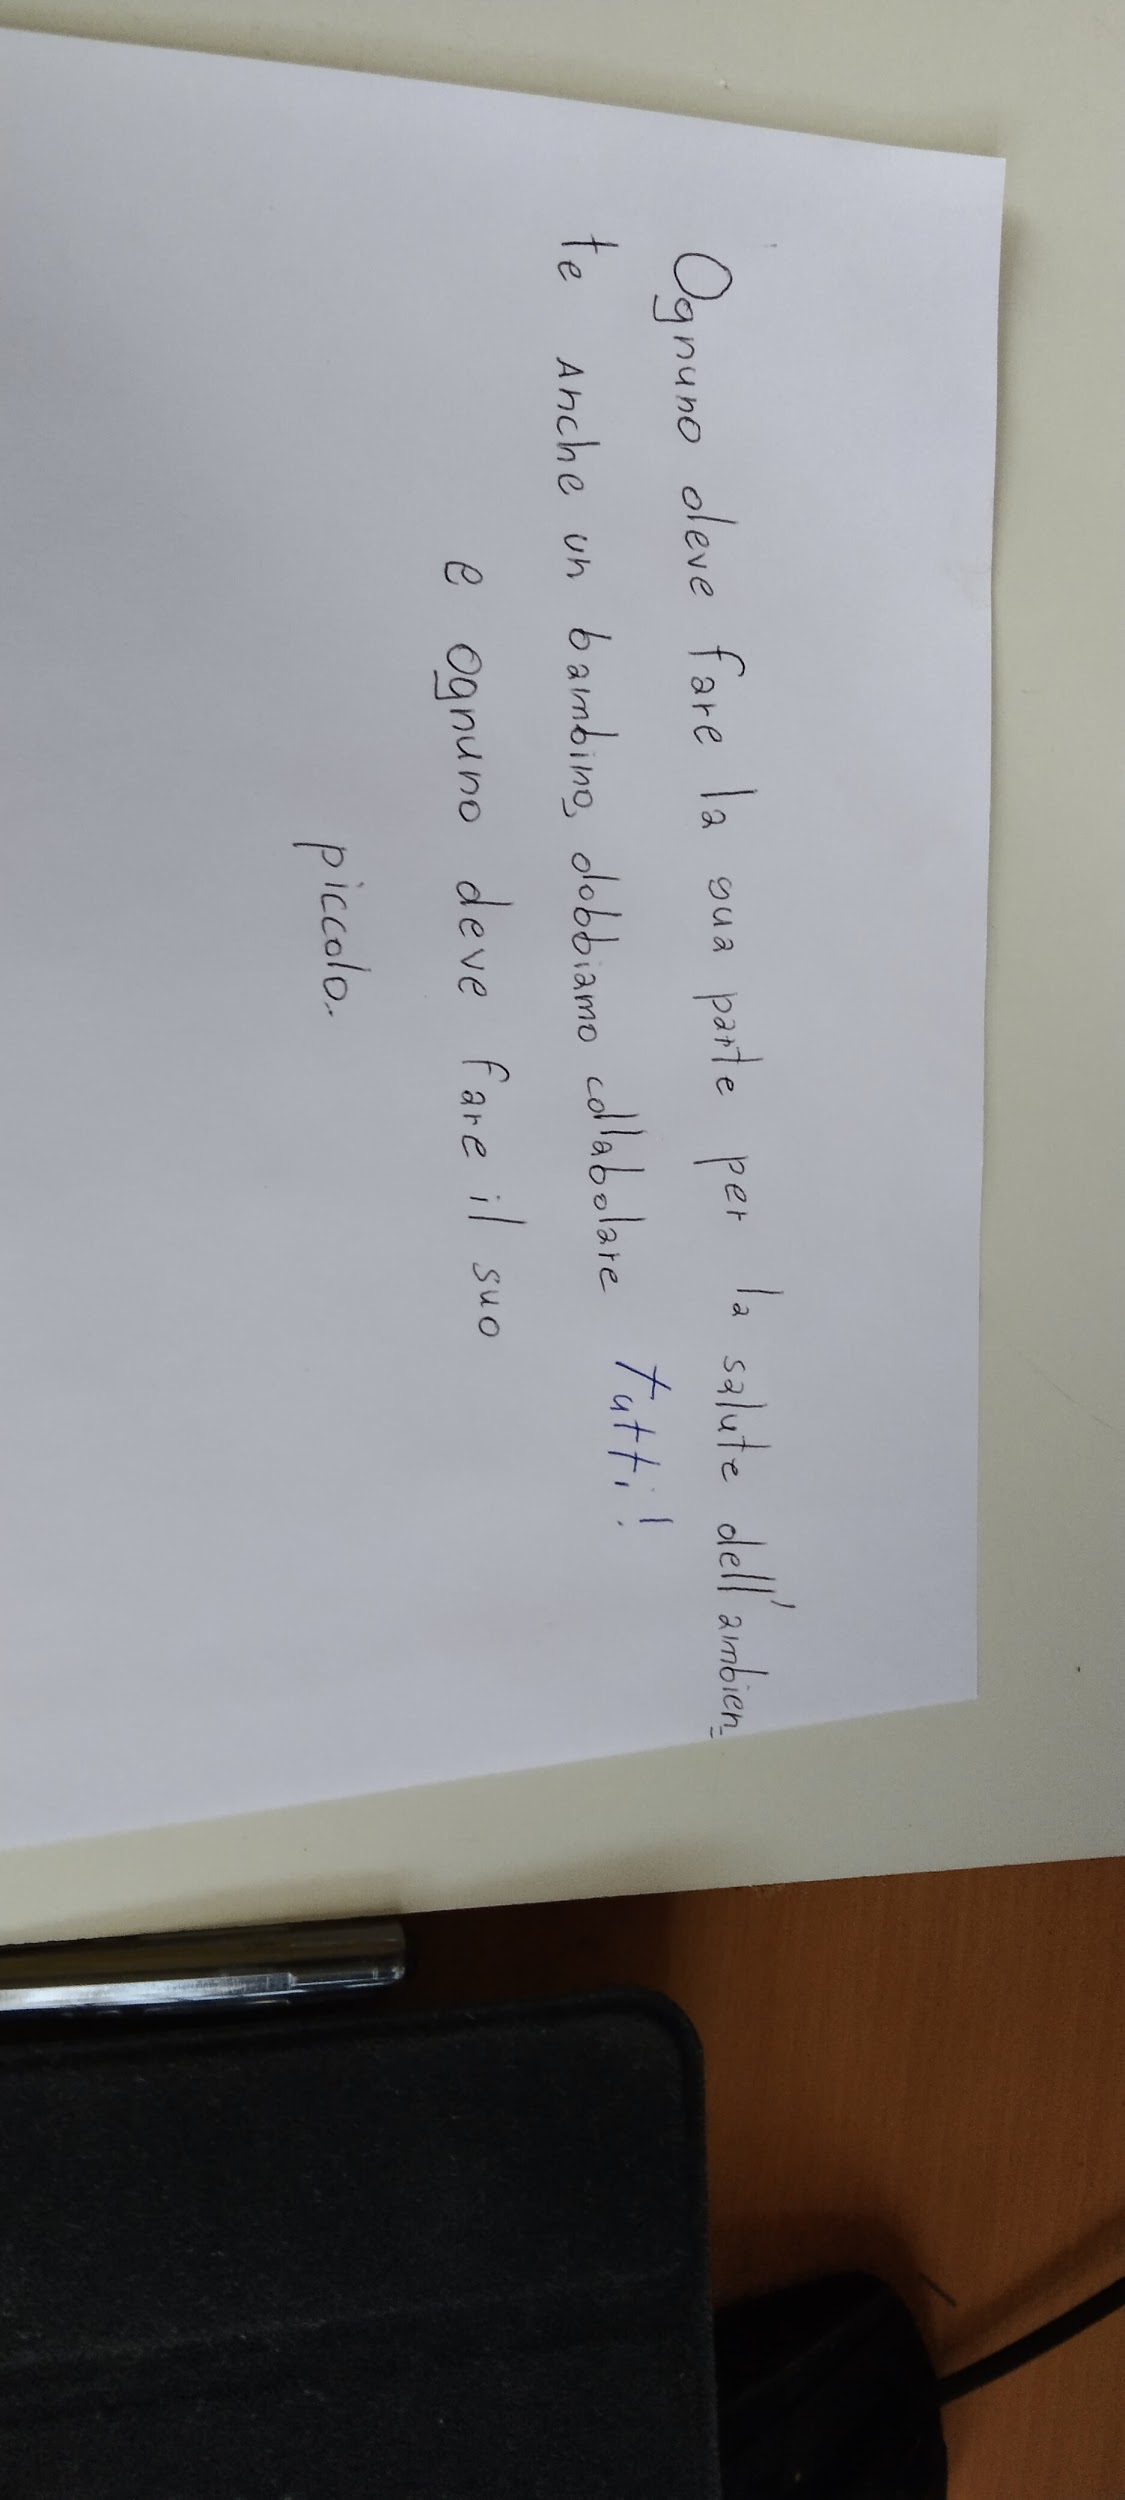 Ognuno deve fare la sua parte per la salute dell'ambien-
te Anche un bambino, dobbiamo collabolare tutti!
e ognuno deve fare il suo
piccolo..